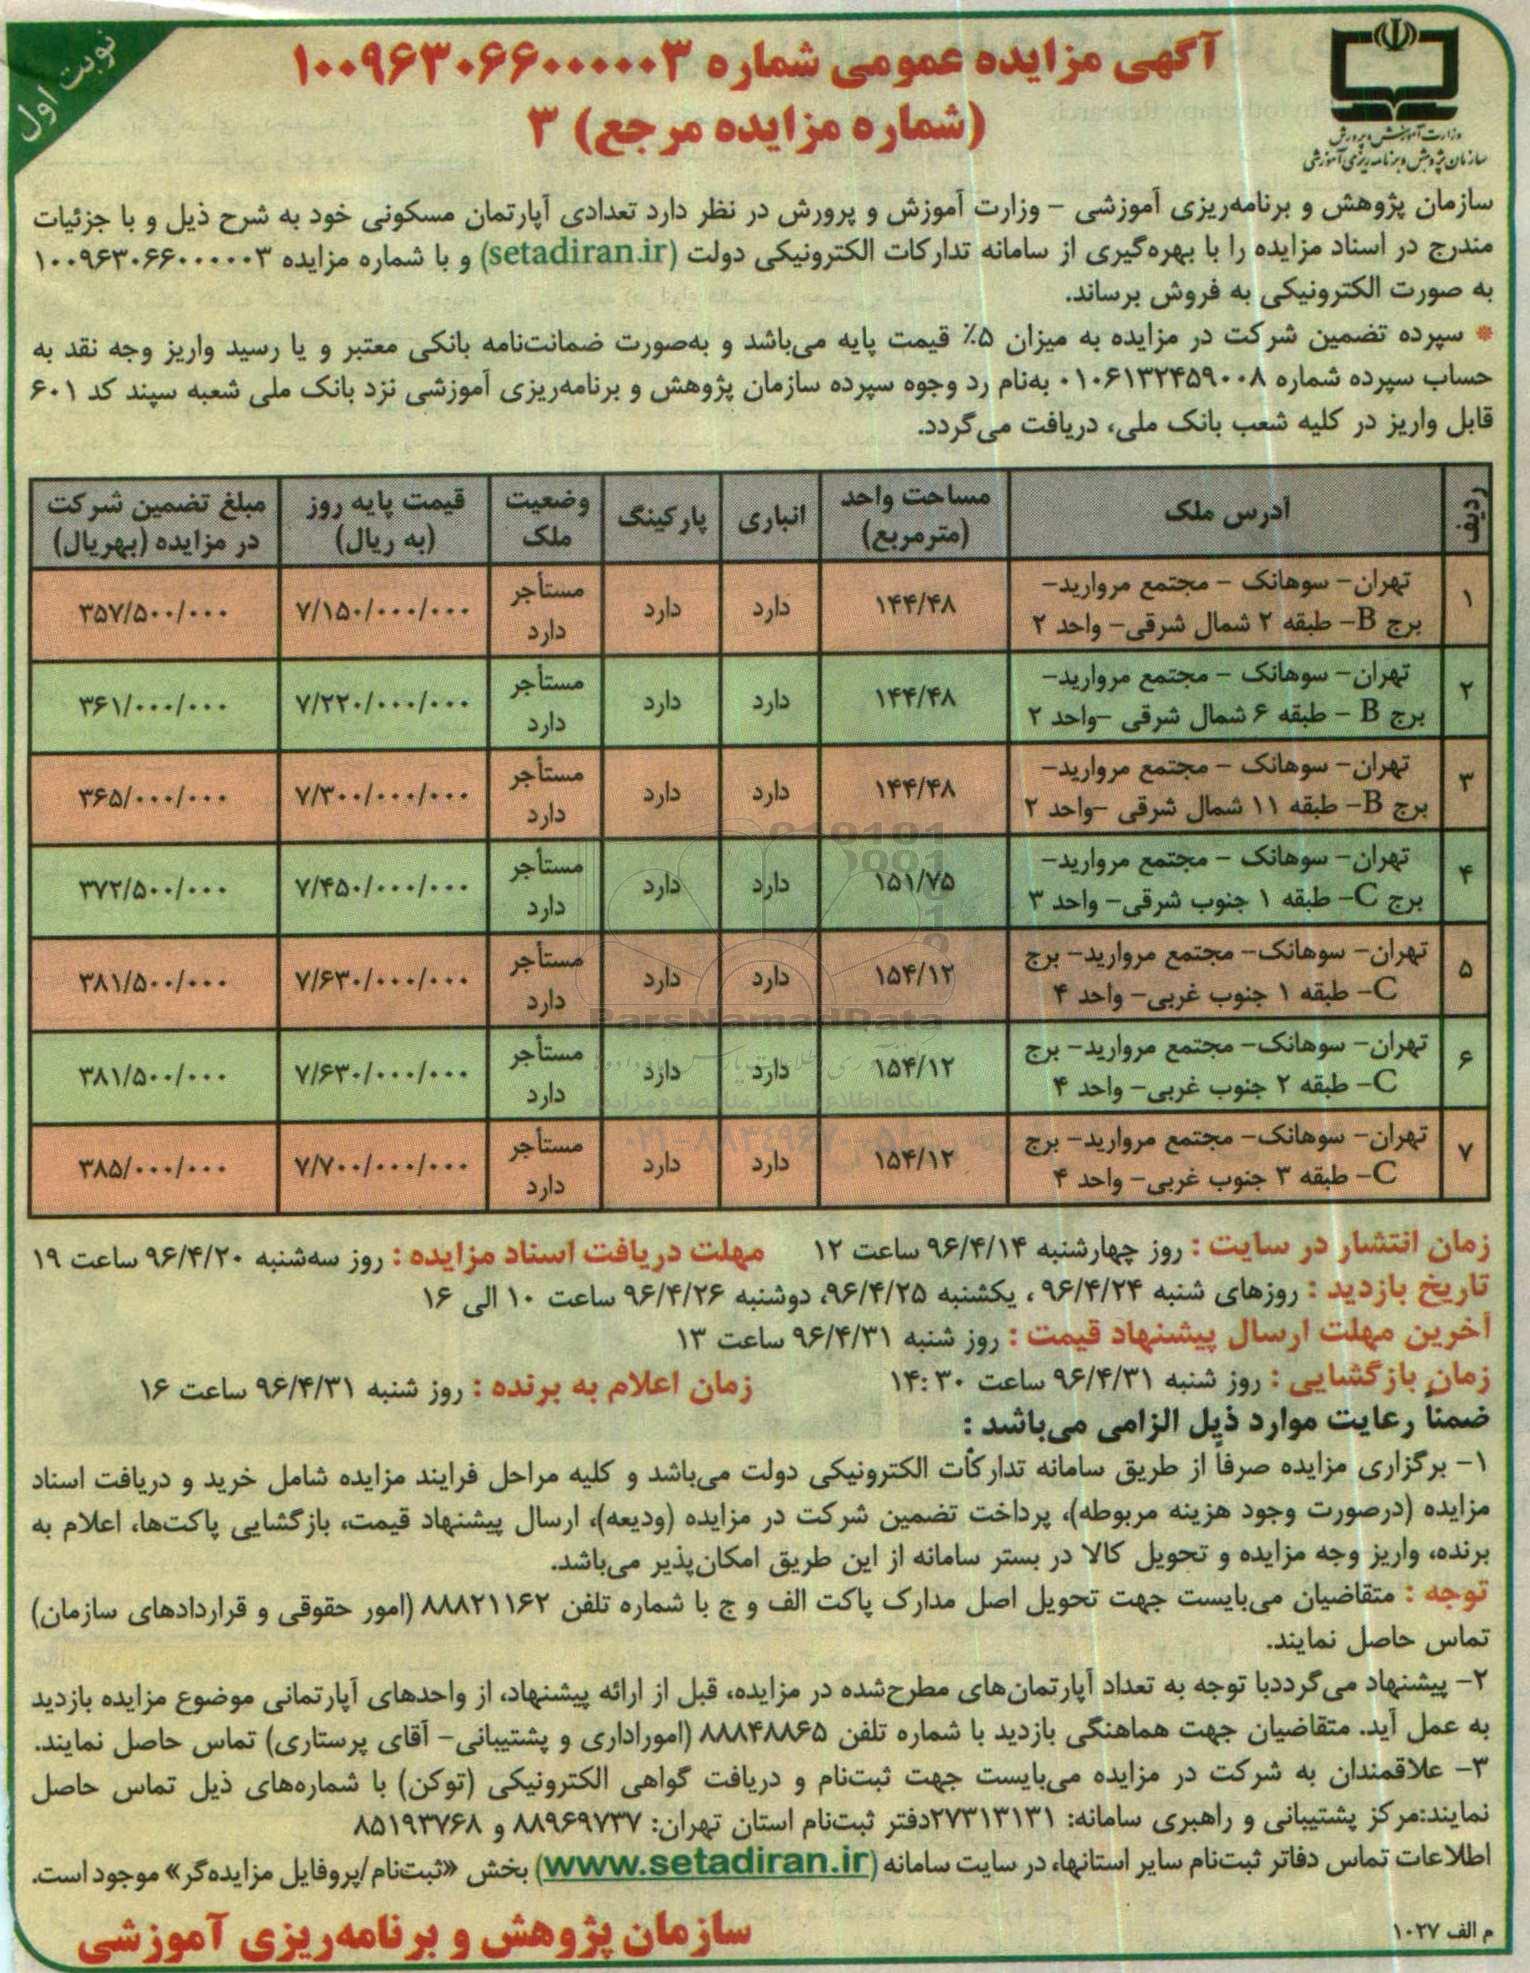 نوبت اول
وزارت آموزش و پرورش
سازمان پژوهش و برنامه‌ریزی آموزشی
آگهی مزایده عمومی شماره ۱۰۰۹۶۳۰۶۶۰۰۰۰۰۳
(شماره مزایده مرجع) ۳
سازمان پژوهش و برنامه‌ریزی آموزشی – وزارت آموزش و پرورش در نظر دارد تعدادی آپارتمان مسکونی خود به شرح ذیل و با جزئیات
مندرج در اسناد مزایده را با بهره‌گیری از سامانه تدارکات الکترونیکی دولت (setadiran.ir) و با شماره مزایده ۱۰۰۹۶۳۰۶۶۰۰۰۰۰۳
به صورت الکترونیکی به فروش برساند.
* سپرده تضمین شرکت در مزایده به میزان ۵٪ قیمت پایه می‌باشد و به‌صورت ضمانت‌نامه بانکی معتبر و یا رسید واریز وجه نقد به
حساب سپرده شماره ۰۱۰۶۱۳۲۴۵۹۰۰۸ به‌نام رد وجوه سپرده سازمان پژوهش و برنامه‌ریزی آموزشی نزد بانک ملی شعبه سپند کد ۶۰۱
قابل واریز در کلیه شعب بانک ملی، دریافت می‌گردد.
ردیف آدرس ملک مساحت واحد (مترمربع) انباری پارکینگ وضعیت ملک قیمت پایه روز (به ریال) مبلغ تضمین شرکت در مزایده (به‌ریال)
۱ تهران- سوهانک – مجتمع مروارید- برج B- طبقه ۲ شمال شرقی- واحد ۲ ۱۴۴/۴۸ دارد دارد مستأجر دارد ۷/۱۵۰/۰۰۰/۰۰۰ ۳۵۷/۵۰۰/۰۰۰
۲ تهران- سوهانک – مجتمع مروارید- برج B – طبقه ۶ شمال شرقی -واحد ۲ ۱۴۴/۴۸ دارد دارد مستأجر دارد ۷/۲۲۰/۰۰۰/۰۰۰ ۳۶۱/۰۰۰/۰۰۰
۳ تهران- سوهانک – مجتمع مروارید- برج B- طبقه ۱۱ شمال شرقی -واحد ۲ ۱۴۴/۴۸ دارد دارد مستأجر دارد ۷/۳۰۰/۰۰۰/۰۰۰ ۳۶۵/۰۰۰/۰۰۰
۴ تهران- سوهانک – مجتمع مروارید- برج C- طبقه ۱ جنوب شرقی- واحد ۳ ۱۵۱/۷۵ دارد دارد مستأجر دارد ۷/۴۵۰/۰۰۰/۰۰۰ ۳۷۲/۵۰۰/۰۰۰
۵ تهران- سوهانک- مجتمع مروارید- برج C- طبقه ۱ جنوب غربی- واحد ۴ ۱۵۴/۱۲ دارد دارد مستأجر دارد ۷/۶۳۰/۰۰۰/۰۰۰ ۳۸۱/۵۰۰/۰۰۰
۶ تهران- سوهانک- مجتمع مروارید- برج C- طبقه ۲ جنوب غربی- واحد ۴ ۱۵۴/۱۲ دارد دارد مستأجر دارد ۷/۶۳۰/۰۰۰/۰۰۰ ۳۸۱/۵۰۰/۰۰۰
۷ تهران- سوهانک- مجتمع مروارید- برج C- طبقه ۳ جنوب غربی- واحد ۴ ۱۵۴/۱۲ دارد دارد مستأجر دارد ۷/۷۰۰/۰۰۰/۰۰۰ ۳۸۵/۰۰۰/۰۰۰
ParsNamadData
زمان انتشار در سایت : روز چهارشنبه ۹۶/۴/۱۴ ساعت ۱۲ مهلت دریافت اسناد مزایده : روز سه‌شنبه ۹۶/۴/۲۰ ساعت ۱۹
تاریخ بازدید : روزهای شنبه ۹۶/۴/۲۴ ، یکشنبه ۹۶/۴/۲۵، دوشنبه ۹۶/۴/۲۶ ساعت ۱۰ الی ۱۶
آخرین مهلت ارسال پیشنهاد قیمت : روز شنبه ۹۶/۴/۳۱ ساعت ۱۳
زمان بازگشایی : روز شنبه ۹۶/۴/۳۱ ساعت ۱۴:۳۰ زمان اعلام به برنده : روز شنبه ۹۶/۴/۳۱ ساعت ۱۶
ضمناً رعایت موارد ذیل الزامی می‌باشد :
۱- برگزاری مزایده صرفاً از طریق سامانه تدارکات الکترونیکی دولت می‌باشد و کلیه مراحل فرایند مزایده شامل خرید و دریافت اسناد
مزایده (درصورت وجود هزینه مربوطه)، پرداخت تضمین شرکت در مزایده (ودیعه)، ارسال پیشنهاد قیمت، بازگشایی پاکت‌ها، اعلام به
برنده، واریز وجه مزایده و تحویل کالا در بستر سامانه از این طریق امکان‌پذیر می‌باشد.
توجه : متقاضیان می‌بایست جهت تحویل اصل مدارک پاکت الف و ج با شماره تلفن ۸۸۸۲۱۱۶۲ (امور حقوقی و قراردادهای سازمان)
تماس حاصل نمایند.
۲- پیشنهاد می‌گرددبا توجه به تعداد آپارتمان‌های مطرح‌شده در مزایده، قبل از ارائه پیشنهاد، از واحدهای آپارتمانی موضوع مزایده بازدید
به عمل آید. متقاضیان جهت هماهنگی بازدید با شماره تلفن ۸۸۸۴۸۸۶۵ (اموراداری و پشتیبانی- آقای پرستاری) تماس حاصل نمایند.
۳- علاقمندان به شرکت در مزایده می‌بایست جهت ثبت‌نام و دریافت گواهی الکترونیکی (توکن) با شماره‌های ذیل تماس حاصل
نمایند:مرکز پشتیبانی و راهبری سامانه: ۲۷۳۱۳۱۳۱دفتر ثبت‌نام استان تهران: ۸۸۹۶۹۷۳۷ و ۸۵۱۹۳۷۶۸
اطلاعات تماس دفاتر ثبت‌نام سایر استانها، در سایت سامانه (www.setadiran.ir) بخش «ثبت‌نام/پروفایل مزایده‌گر» موجود است.
م الف ۱۰۲۷
سازمان پژوهش و برنامه‌ریزی آموزشی